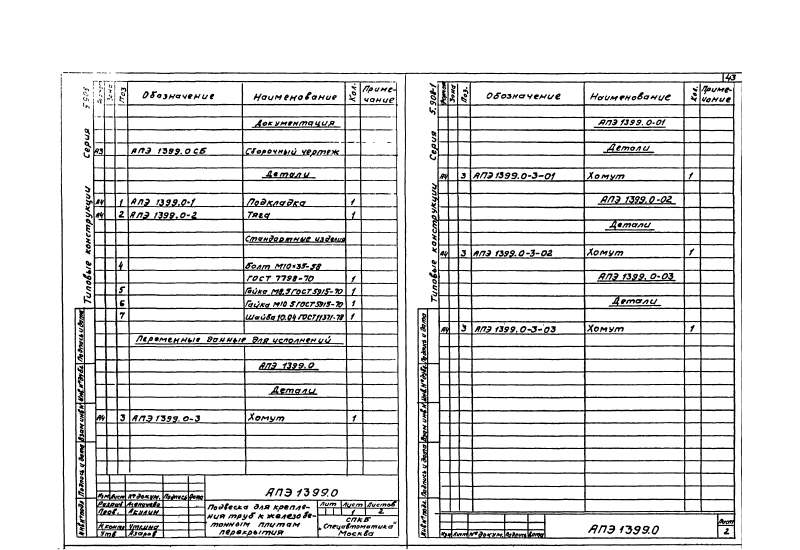 43
Серия 5.908-1
Типовые конструкции
Формат Зона Поз. Обозначение Наименование Кол. Приме-
чание
Документация
А3 АПЭ 1399.0 СБ Сборочный чертеж
Детали
А4 1 АПЭ 1399.0-1 Подкладка 1
А4 2 АПЭ 1399.0-2 Тяга 1
Стандартные изделия
4 Болт М10×35-58
ГОСТ 7798-70 1
5 Гайка М8.5 ГОСТ 5915-70 1
6 Гайка М10 5 ГОСТ 5915-70 1
7 Шайба 10.04 ГОСТ 11371-78 1
Переменные данные для исполнений
АПЭ 1399.0
Детали
А4 3 АПЭ 1399.0-3 Хомут 1
Инв № подл Подпись и дата Взам инв № Инв № дубл Подпись и дата
Изм Лист № докум. Подпись Дата
Разраб
Пров. Акулин
Н.контр Уткина
Утв Азаров
АПЭ 1399.0
Подвеска для крепле-
ния труб к железобе-
тонным плитам
перекрытия
Лит Лист Листов
1 2
СПКБ
"Спецавтоматика"
Москва
Серия 5.908-1
Типовые конструкции
Формат Зона Поз. Обозначение Наименование Кол. Приме-
чание
АПЭ 1399.0-01
Детали
А4 3 АПЭ 1399.0-3-01 Хомут 1
АПЭ 1399.0-02
Детали
А4 3 АПЭ 1399.0-3-02 Хомут 1
АПЭ 1399.0-03
Детали
А4 3 АПЭ 1399.0-3-03 Хомут 1
Инв № подл Подпись и дата Взам инв № Инв № дубл Подпись и дата
Изм Лист № докум. Подпись Дата
АПЭ 1399.0
Лист
2